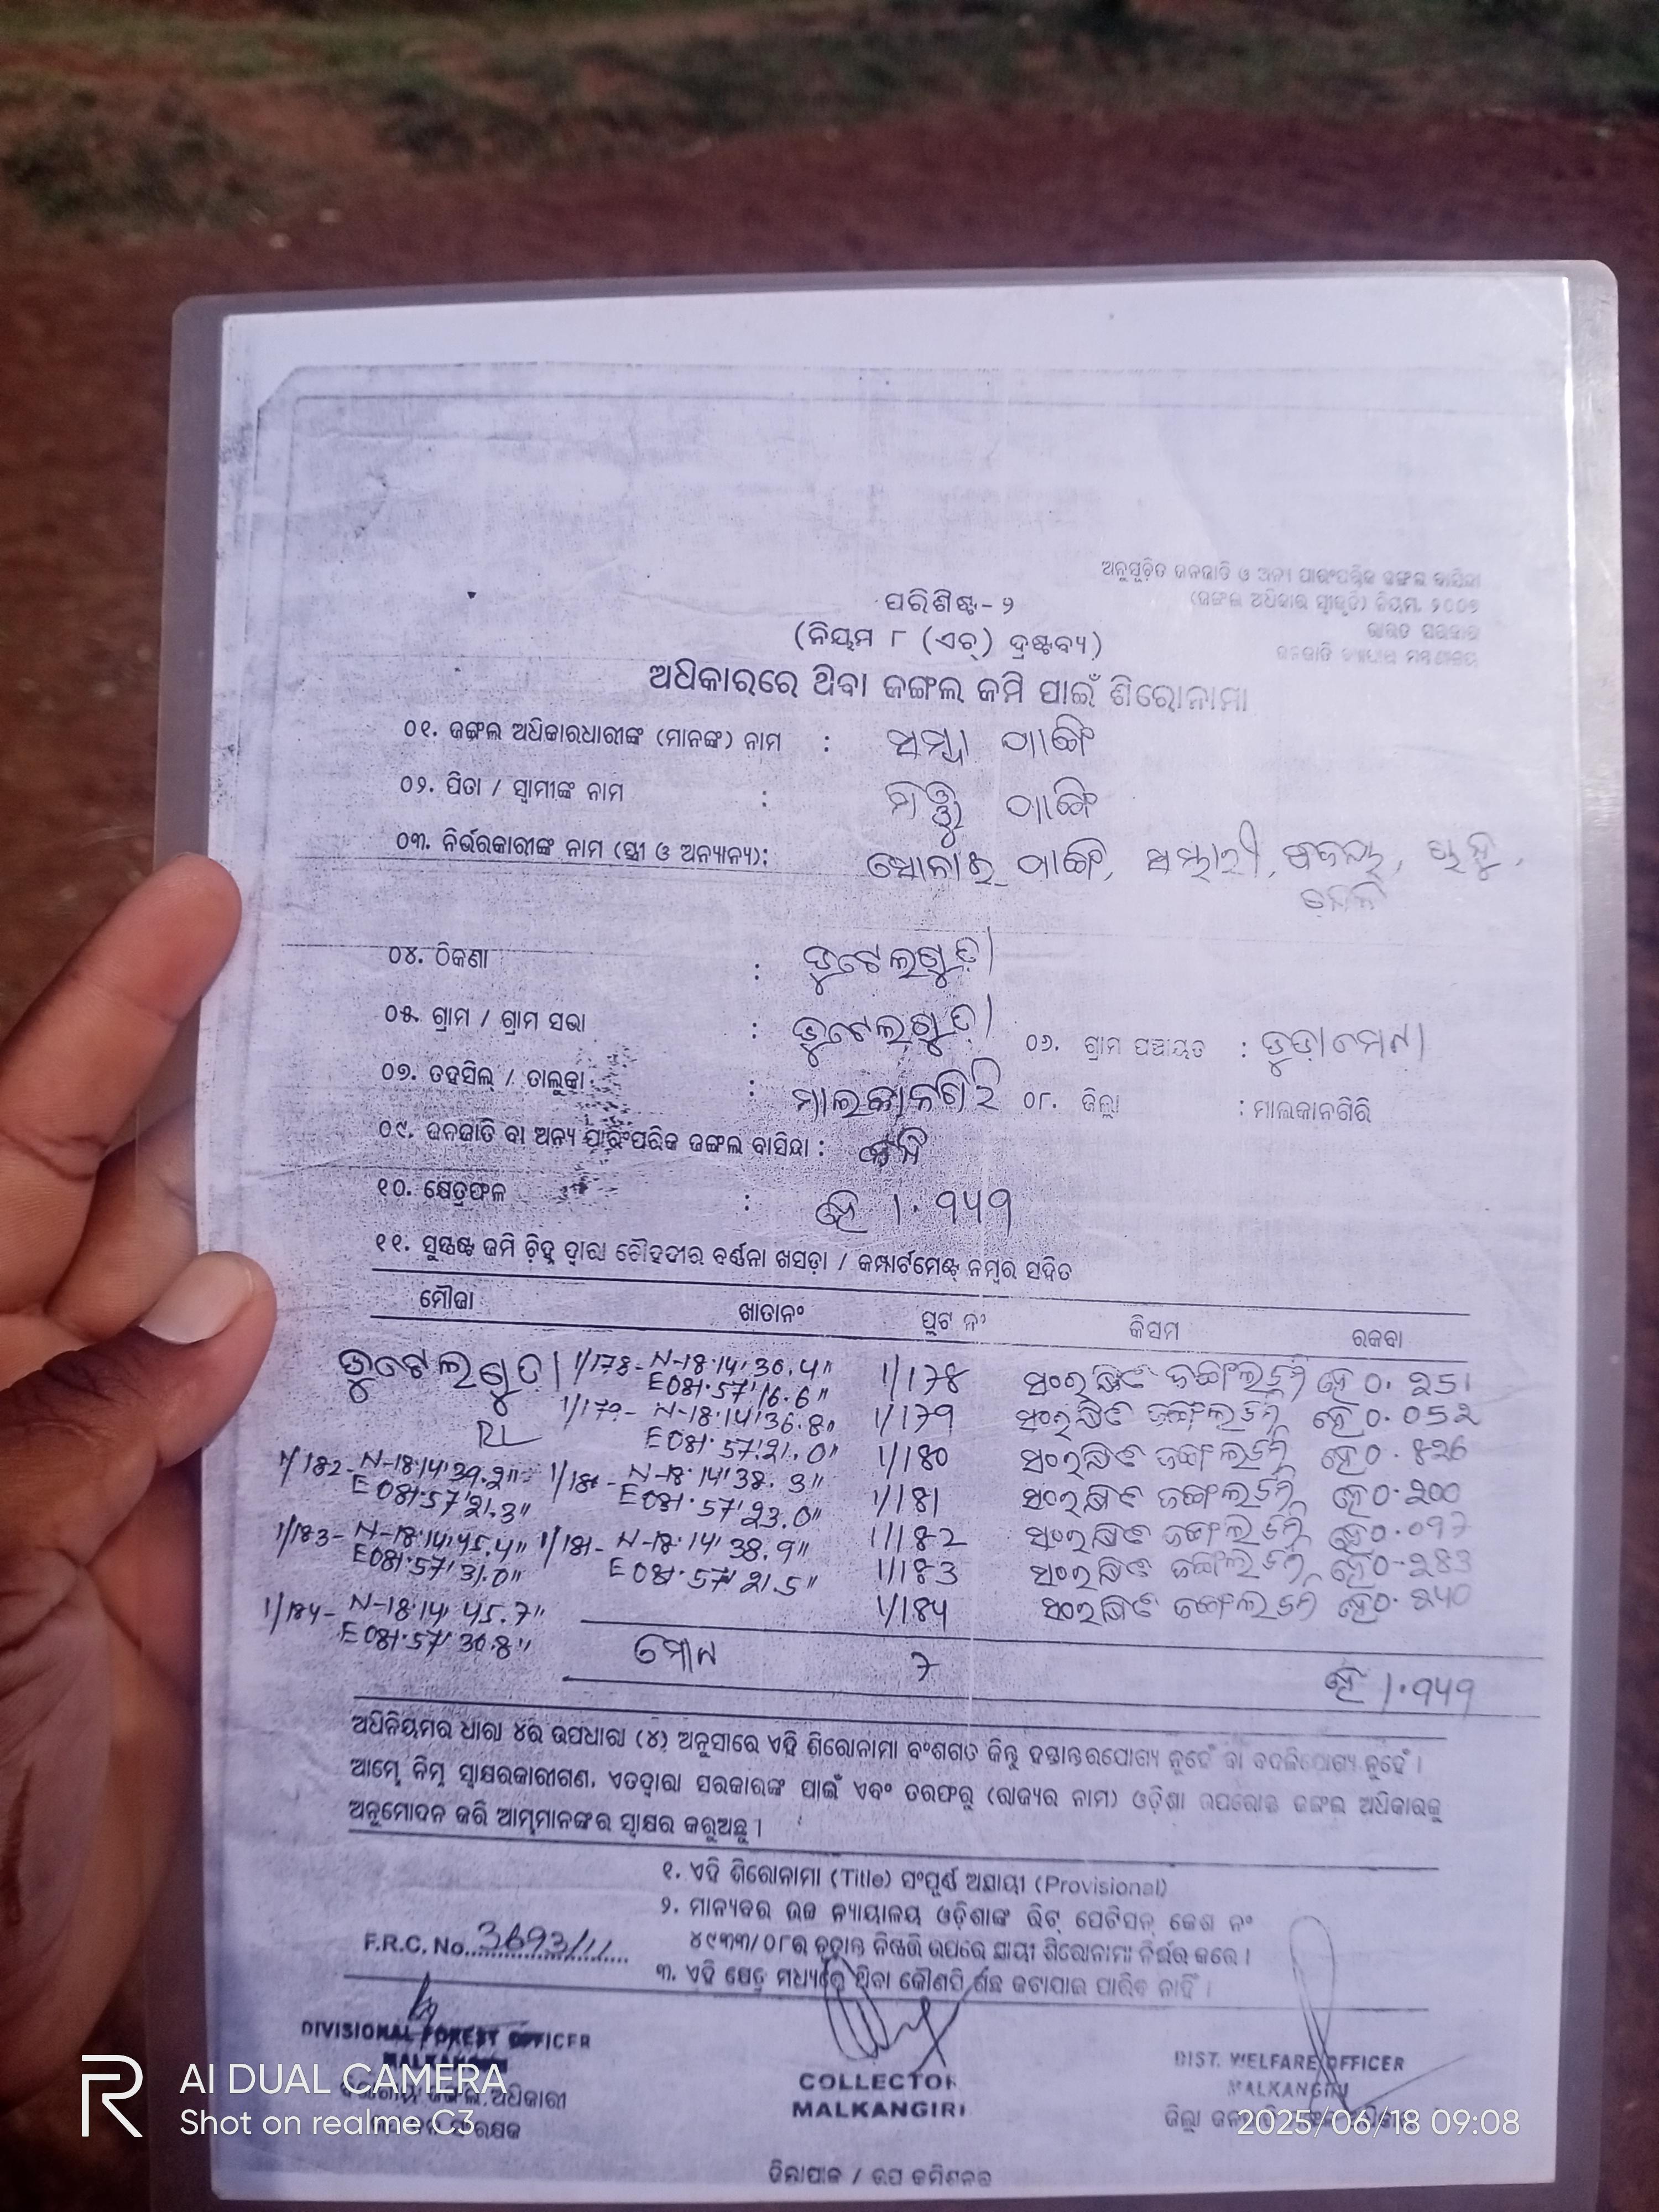 ଅନୁସୂଚିତ ଜନଜାତି ଓ ଅନ୍ୟ ପାରଂପରିକ ଜଙ୍ଗଲ ବାସିନ୍ଦା
(ଜଙ୍ଗଲ ଅଧିକାର ସ୍ୱୀକୃତି) ନିୟମ, ୨୦୦୭
ଭାରତ ସରକାର
ଜନଜାତି ମନ୍ତ୍ରଣାଳୟ
ପରିଶିଷ୍ଟ - ୨
(ନିୟମ ୮ (ଏଚ୍) ଦ୍ରଷ୍ଟବ୍ୟ)
ଅଧିକାରରେ ଥିବା ଜଙ୍ଗଲ ଜମି ପାଇଁ ଶିରୋନାମା
୦୧. ଜଙ୍ଗଲ ଅଧିକାରଧାରୀଙ୍କ (ମାନଙ୍କ) ନାମ :
୦୨. ପିତା / ସ୍ୱାମୀଙ୍କ ନାମ :
୦୩. ନିର୍ଭରକାରୀଙ୍କ ନାମ (ସ୍ତ୍ରୀ ଓ ଅନ୍ୟାନ୍ୟ):
୦୪. ଠିକଣା : ଡୁଟେଲଗୁଡ଼ା
୦୫. ଗ୍ରାମ / ଗ୍ରାମ ସଭା : ଡୁଟେଲଗୁଡ଼ା ୦୬. ଗ୍ରାମ ପଞ୍ଚାୟତ :
୦୭. ତହସିଲ୍ / ତାଲୁକା : ମାଲକାନଗିରି ୦୮. ଜିଲ୍ଲା : ମାଲକାନଗିରି
୦୯. ଜନଜାତି ବା ଅନ୍ୟ ପାରଂପରିକ ଜଙ୍ଗଲ ବାସିନ୍ଦା :
୧୦. କ୍ଷେତ୍ରଫଳ : ହେ ୧.୭୪୨
୧୧. ସୁସ୍ପଷ୍ଟ ଜମି ଚିହ୍ନ ଦ୍ୱାରା ଚୌହଦୀର ବର୍ଣ୍ଣନା ଖସଡ଼ା / କମ୍ପାର୍ଟମେଣ୍ଟ୍ ନମ୍ବର ସହିତ
ମୌଜା ଖାତାନଂ ପ୍ଲଟ ନଂ କିସମ ରକବା
ଡୁଟେଲଗୁଡ଼ା 1/178- N-18·14' 36.4" 1/178 ସଂରକ୍ଷିତ ଜଙ୍ଗଲ ଜମି ହେ 0.251
E081·57'16.6"
1/179- N-18·14'36.8" 1/179 ସଂରକ୍ଷିତ ଜଙ୍ଗଲ ଜମି ହେ 0.052
RL E081·57'21.0" 1/180 ସଂରକ୍ଷିତ ଜଙ୍ଗଲ ଜମି
1/182- N-18·14'39.2" N-18·14' 38.3" 1/181 ସଂରକ୍ଷିତ ଜଙ୍ଗଲ ଜମି ହେ 0.200
E081·57'21.3" E081·57'23.0" 1/182 ସଂରକ୍ଷିତ ଜଙ୍ଗଲ ଜମି ହେ 0.097
1/183- N-18·14'45.4" 1/181- N-18·14' 38.9" 1/183 ସଂରକ୍ଷିତ ଜଙ୍ଗଲ ଜମି ହେ 0.283
E081·57'31.0" E081·57'21.5"
1/184- N-18·14' 45.7" 1/184 ସଂରକ୍ଷିତ ଜଙ୍ଗଲ ଜମି
E081·57' 30.8" ମୋଟ 7
ଅଧିନିୟମର ଧାରା ୪ର ଉପଧାରା (୪) ଅନୁସାରେ ଏହି ଶିରୋନାମା ବଂଶଗତ କିନ୍ତୁ ହସ୍ତାନ୍ତରଯୋଗ୍ୟ ନୁହେଁ ବା ବଦଳିଯୋଗ୍ୟ ନୁହେଁ ।
ଆମ୍ଭେ ନିମ୍ନ ସ୍ୱାକ୍ଷରକାରୀଗଣ, ଏତଦ୍ୱାରା ସରକାରଙ୍କ ପାଇଁ ଏବଂ ତରଫରୁ (ରାଜ୍ୟର ନାମ) ଓଡ଼ିଶା ଉପରୋକ୍ତ ଜଙ୍ଗଲ ଅଧିକାରକୁ
ଅନୁମୋଦନ କରି ଆମ୍ଭମାନଙ୍କର ସ୍ୱାକ୍ଷର କରୁଅଛୁ ।
୧. ଏହି ଶିରୋନାମା (Title) ସଂପୂର୍ଣ୍ଣ ଅସ୍ଥାୟୀ (Provisional)
୨. ମାନ୍ୟବର ଉଚ୍ଚ ନ୍ୟାୟାଳୟ ଓଡ଼ିଶାଙ୍କ ରିଟ୍ ପେଟିସନ୍ କେଶ ନଂ
୪୯୩୩/୦୮ର ଚୂଡ଼ାନ୍ତ ନିଷ୍ପତ୍ତି ଉପରେ ସ୍ଥାୟୀ ଶିରୋନାମା ନିର୍ଭର କରେ ।
F.R.C. No. 3693/11
୩. ଏହି କ୍ଷେତ୍ର ମଧ୍ୟରେ ଥିବା କୌଣସି ଗଛ କଟାଯାଇ ପାରିବ ନାହିଁ ।
DIVISIONAL FOREST OFFICER
MALKANGIRI
ଅଧିକାରୀ
COLLECTOR
MALKANGIRI
DIST. WELFARE OFFICER
MALKANGIRI
ଜିଲ୍ଲାପାଳ / ଉପ କମିଶନର
AI DUAL CAMERA
Shot on realme C3
2025/06/18 09:08